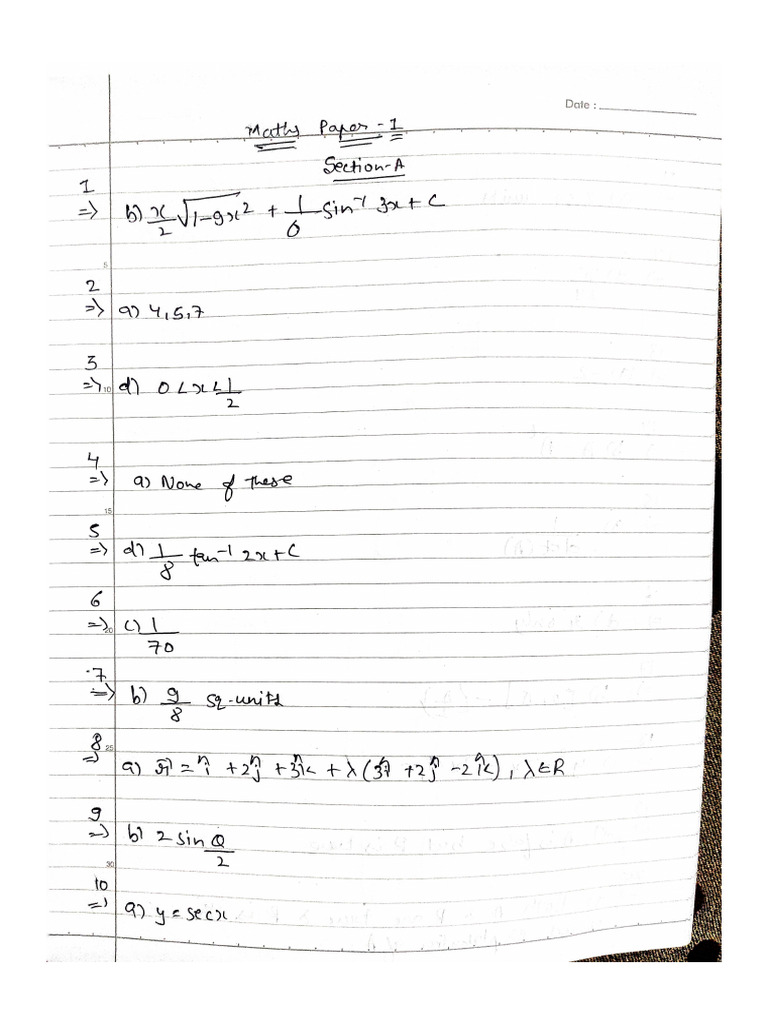 Date :
Maths Paper - 1
Section-A
1
=> b) x/2 √1-9x² + 1/6 sin⁻¹ 3x + C
5
2
=> a) 4,5,7
3
=> 10 d) 0<x<1/2
4
=> a) None of these
15
5
=> d) 1/8 tan⁻¹ 2x+C
6
=> 20 c) 1/70
7
=> b) 9/8 sq-units
8 25
=> a) r⃗ = î + 2ĵ + 3k̂ + λ(3î + 2ĵ - 2k̂), λ∈R
9
=> b) 2 sin θ/2
30
10
=> a) y = secx